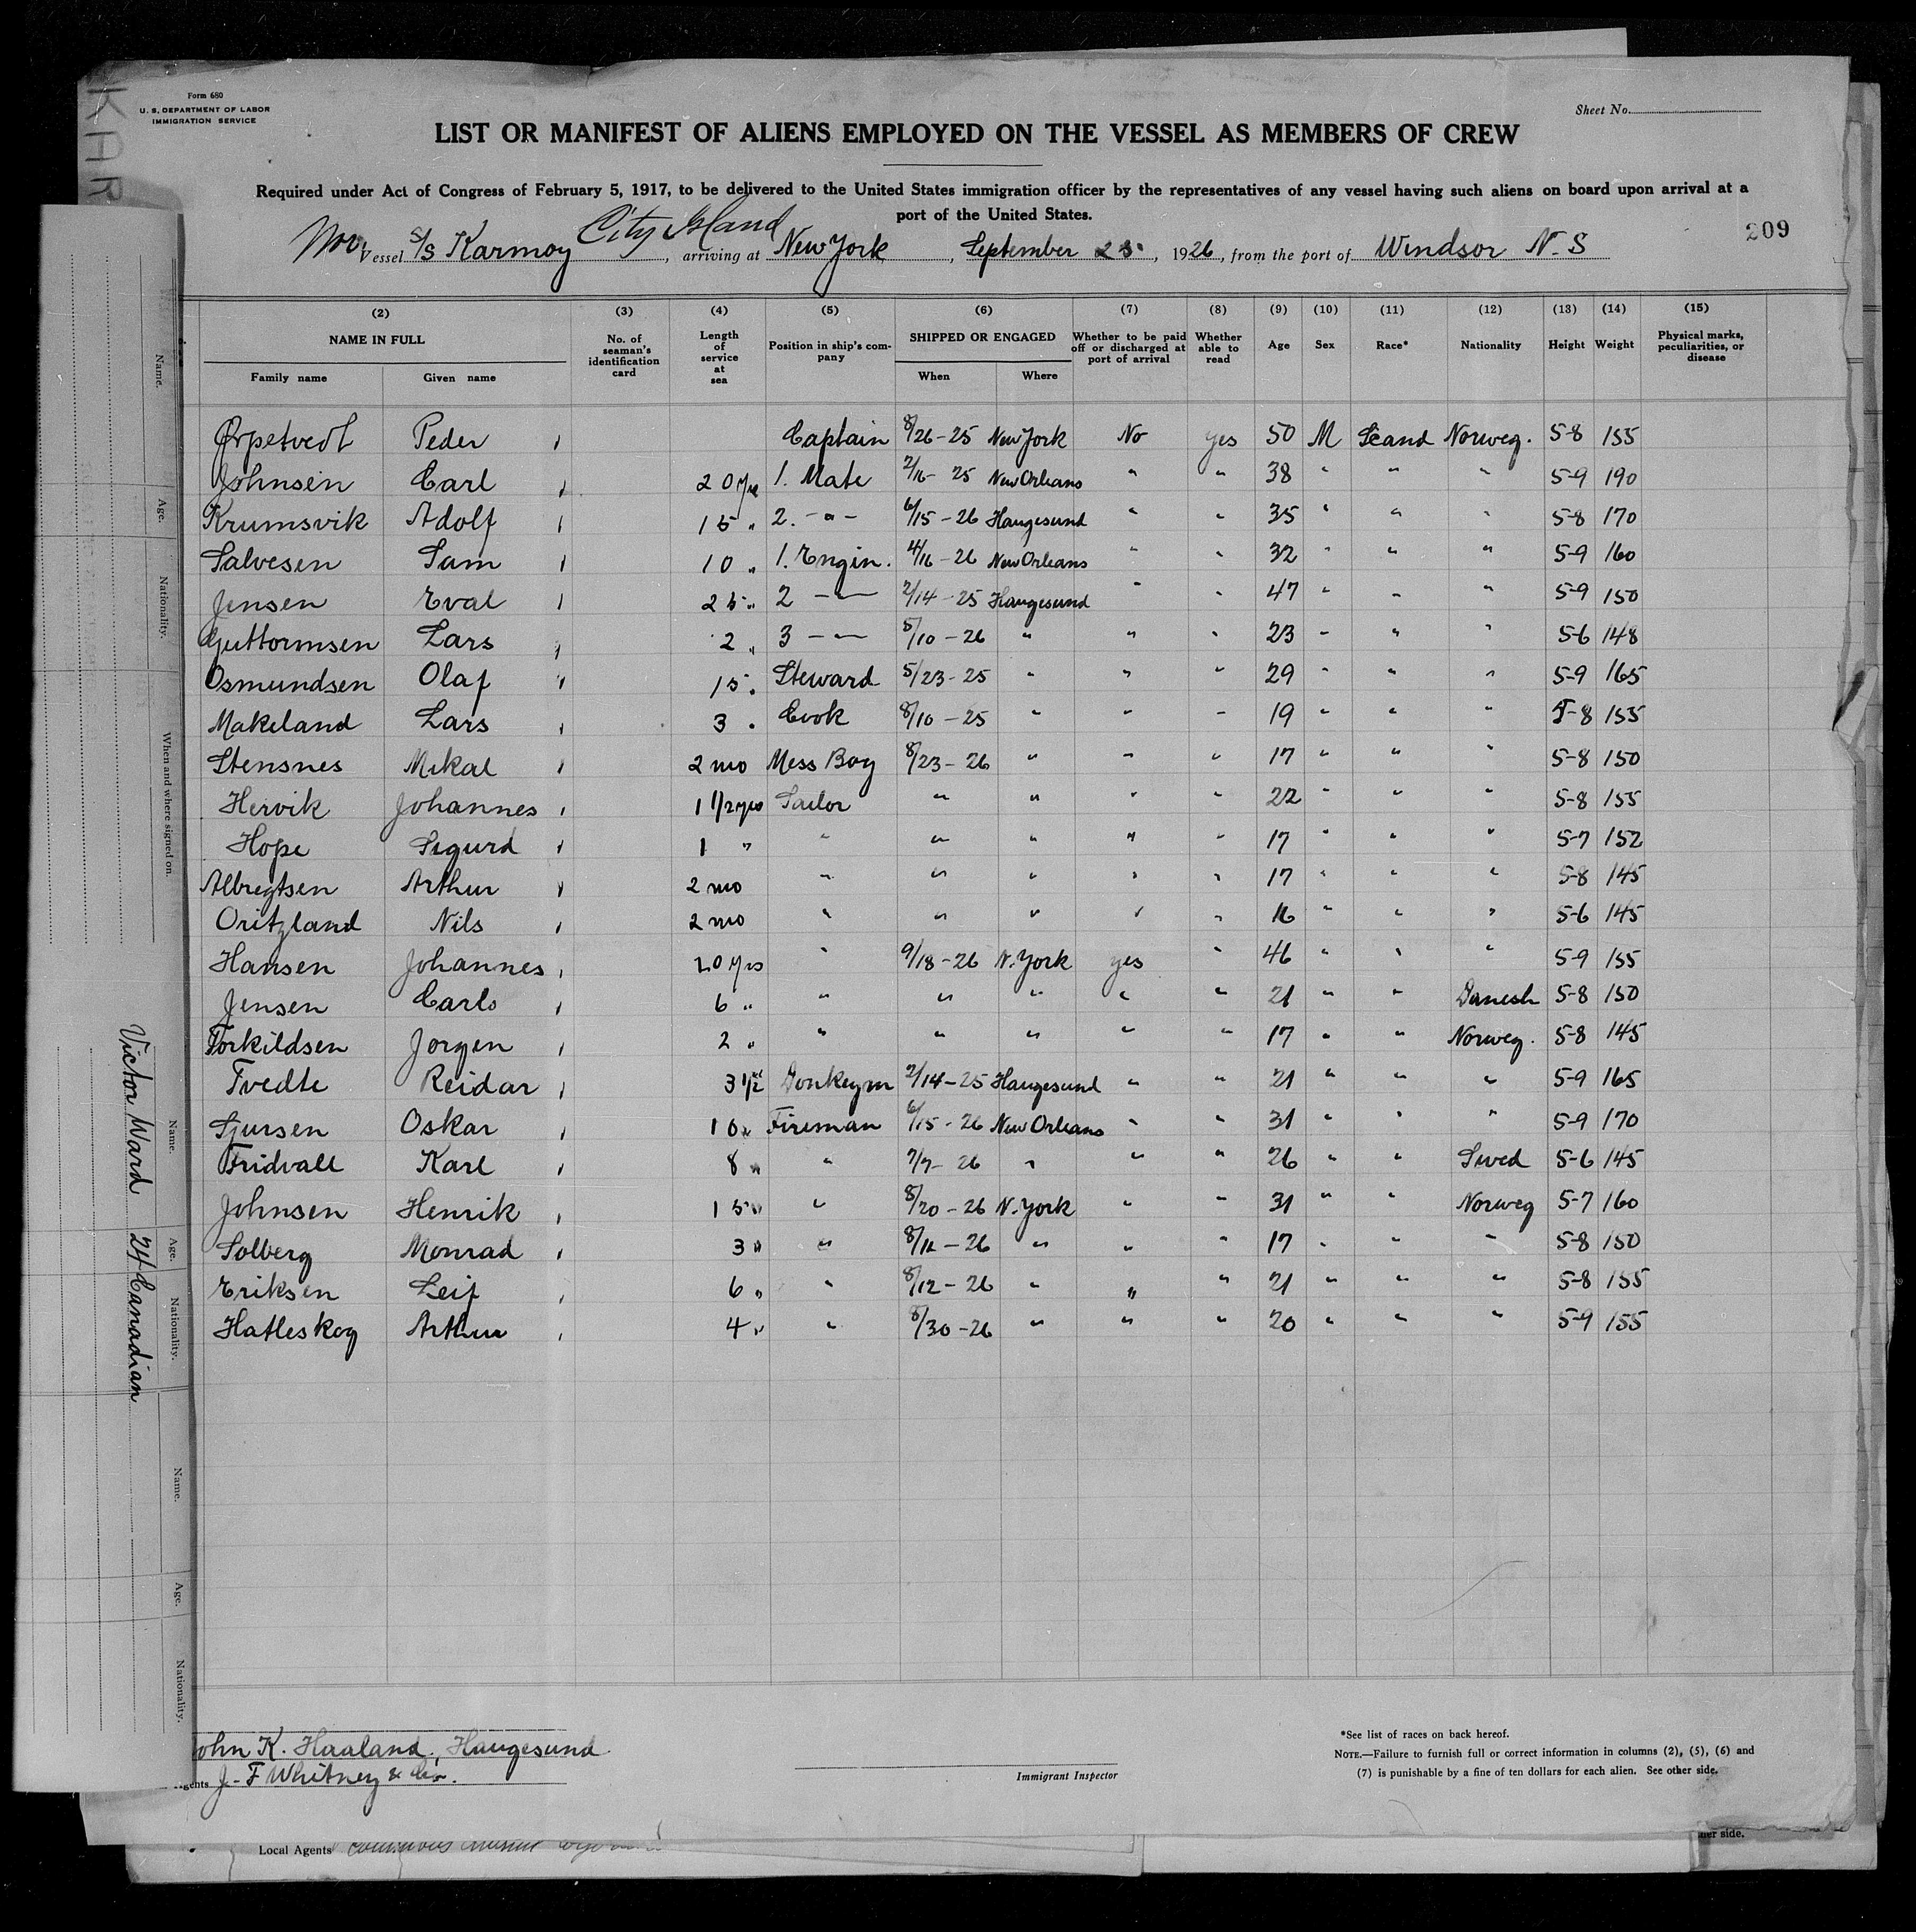 KAR
Form 680
U. S. DEPARTMENT OF LABOR
IMMIGRATION SERVICE
Sheet No.
LIST OR MANIFEST OF ALIENS EMPLOYED ON THE VESSEL AS MEMBERS OF CREW
Required under Act of Congress of February 5, 1917, to be delivered to the United States immigration officer by the representatives of any vessel having such aliens on board upon arrival at a
port of the United States.
209
City Island
Nor. Vessel S/S Karmoy, arriving at New York, September 23, 1926, from the port of Windsor N. S
(2) (3) (4) (5) (6) (7) (8) (9) (10) (11) (12) (13) (14) (15)
NAME IN FULL No. of seaman's identification card Length of service at sea Position in ship's company SHIPPED OR ENGAGED Whether to be paid off or discharged at port of arrival Whether able to read Age Sex Race* Nationality Height Weight Physical marks, peculiarities, or disease
Family name Given name When Where
Ørpetvedt Peder Captain 8/26-25 New York No yes 50 M Scand Norweg. 5-8 155
Johnsen Carl 20 yrs 1. Mate 2/16-25 New Orleans " " 38 " " " 5-9 190
Krumsvik Adolf 15 " 2. -"- 6/15-26 Haugesund " " 35 " " " 5-8 170
Salvesen Sam 10 " 1. Engin. 4/16-26 New Orleans " " 32 " " " 5-9 160
Jensen Eval 25 " 2 -"- 2/14-25 Haugesund " " 47 " " " 5-9 150
Guttormsen Lars 2 " 3 -"- 5/10-26 " " " 23 " " " 5-6 148
Osmundsen Olaf 15 " Steward 5/23-25 " " " 29 " " " 5-9 165
Makeland Lars 3 " Cook 8/10-25 " " " 19 " " " 5-8 155
Stensnes Mikal 2 mo Mess Boy 8/23-26 " " " 17 " " " 5-8 150
Hervik Johannes 1 1/2 yrs Sailor " " " " 22 " " " 5-8 155
Hope Sigurd 1 " " " " " " 17 " " " 5-7 152
Albregtsen Arthur 2 mo " " " " " 17 " " " 5-8 145
Oritzland Nils 2 mo " " " " " 16 " " " 5-6 145
Hansen Johannes 20 yrs " 9/18-26 N. York yes " 46 " " " 5-9 155
Jensen Carlo 6 " " " " " " 21 " " Danish 5-8 150
Torkildsen Jorgen 2 " " " " " " 17 " " Norweg. 5-8 145
Tvedte Reidar 3 1/2 Donkeym 2/14-25 Haugesund " " 21 " " " 5-9 165
Sjursen Oskar 10 " Fireman 6/15-26 New Orleans " " 31 " " " 5-9 170
Fridvall Karl 8 " " 7/7-26 " " " 26 " " Swed 5-6 145
Johnsen Henrik 15 " " 8/20-26 N. York " " 31 " " Norweg 5-7 160
Solberg Monrad 3 " " 8/12-26 " " " 17 " " " 5-8 150
Eriksen Leif 6 " " 8/12-26 " " " 21 " " " 5-8 155
Hatleskog Arthur 4 " " 8/30-26 " " " 20 " " " 5-9 155
John K. Haaland, Haugesund
Agents J. F Whitney & Co.
Immigrant Inspector
*See list of races on back hereof.
NOTE.—Failure to furnish full or correct information in columns (2), (5), (6) and
(7) is punishable by a fine of ten dollars for each alien. See other side.
Local Agents
her side.
Name.
Age.
Nationality.
When and where signed on.
Name.
Age.
Nationality.
Name.
Age.
Nationality.
Victor Ward 24 Canadian